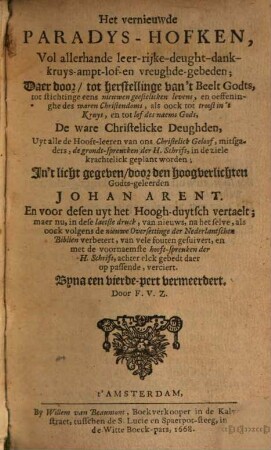 Het vernieuwde
PARADYS-HOFKEN,
Vol allerhande leer-rijke-deught-dank-
kruys-ampt-lof-en vreughde-gebeden;
Daer door / tot herstellinge van't Beelt Godts,
tot stichtinge eens nieuwen geestelicken levens, en oeffenin-
ghe des waren Christendoms, als oock tot troost in 't
Kruys, en tot lof des naems Gods,
De ware Christelicke Deughden,
Uyt alle de Hooft-leeren van ons Christelick Geloof, mitsga-
ders, de grondt-spreucken der H. Schrift, in de ziele
krachtelick geplant worden;
In't licht gegeven / door den hoogverlichten
Godts-geleerden
JOHAN ARENT.
En voor desen uyt het Hoogh-duytsch vertaelt;
maer nu, in dese laetste druck, van nieuws, na het selve, als
oock volgens de nieuwe Oversettinge der Nederlantschen
Biblien verbetert, van vele fouten gesuivert, en
met de voornaemste hooft-spreuken der
H. Schrift, achter elck gebedt daer
op passende, verciert.
Byna een vierde-part vermeerdert.
Door F. V. Z.
t'AMSTERDAM,
By Willem van Beaumont, Boekverkooper in de Kal-
straet, tusschen de S. Lucie en Spaerpot-steeg, in
de Witte Boeck-pars, 1668.